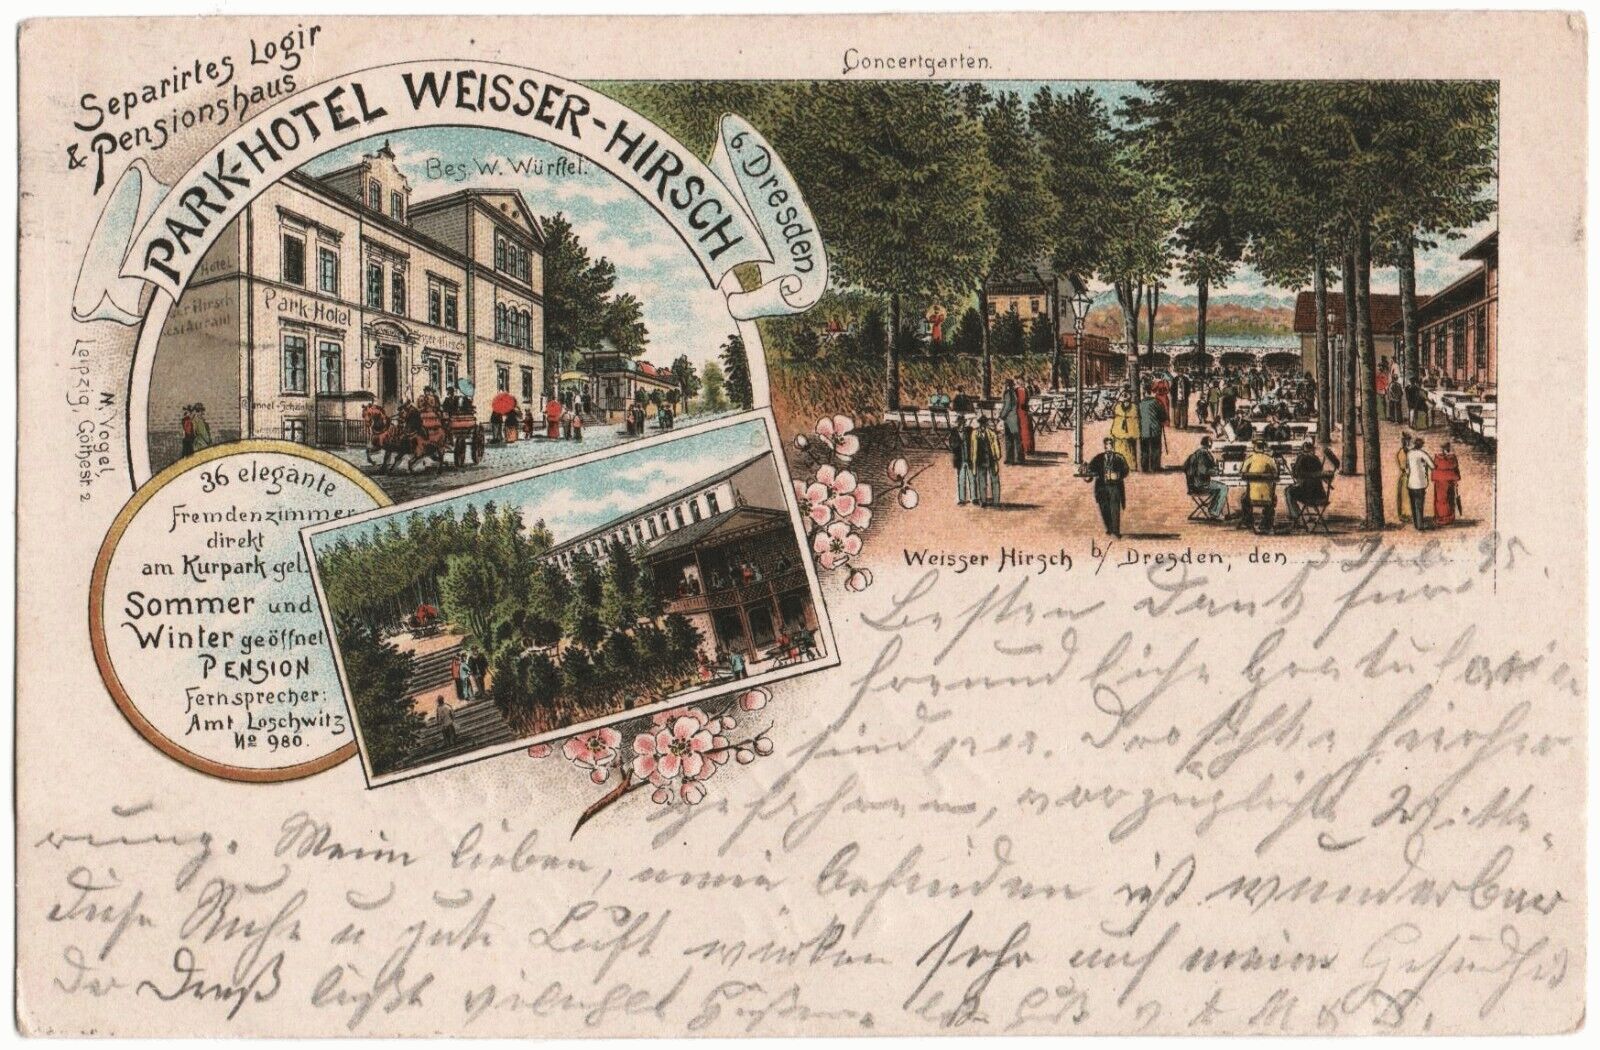 Separirtes Logir
& Pensionshaus
PARK-HOTEL WEISSER-HIRSCH
b. Dresden
Concertgarten.
Bes. W. Würffel.
Hotel
Hirsch
Restaurant
Park-Hotel
N. Vogel,
Leipzig, Göthestr 2
36 elegante
Fremdenzimmer
direkt
am Kurpark gel.
Sommer und
Winter geöffnet
PENSION
Fernsprecher:
Amt Loschwitz
No 980.
Weisser Hirsch b/ Dresden, den 3 Juli 95.
Besten Dank für
freundliche Gratulation
sind per Droschke hierher
gefahren, vorzügliche Witte-
rung. Mein lieben, mein befinden ist wunderbar
diese Ruhe u gute Luft wirken sehr auf meine Gesundheit